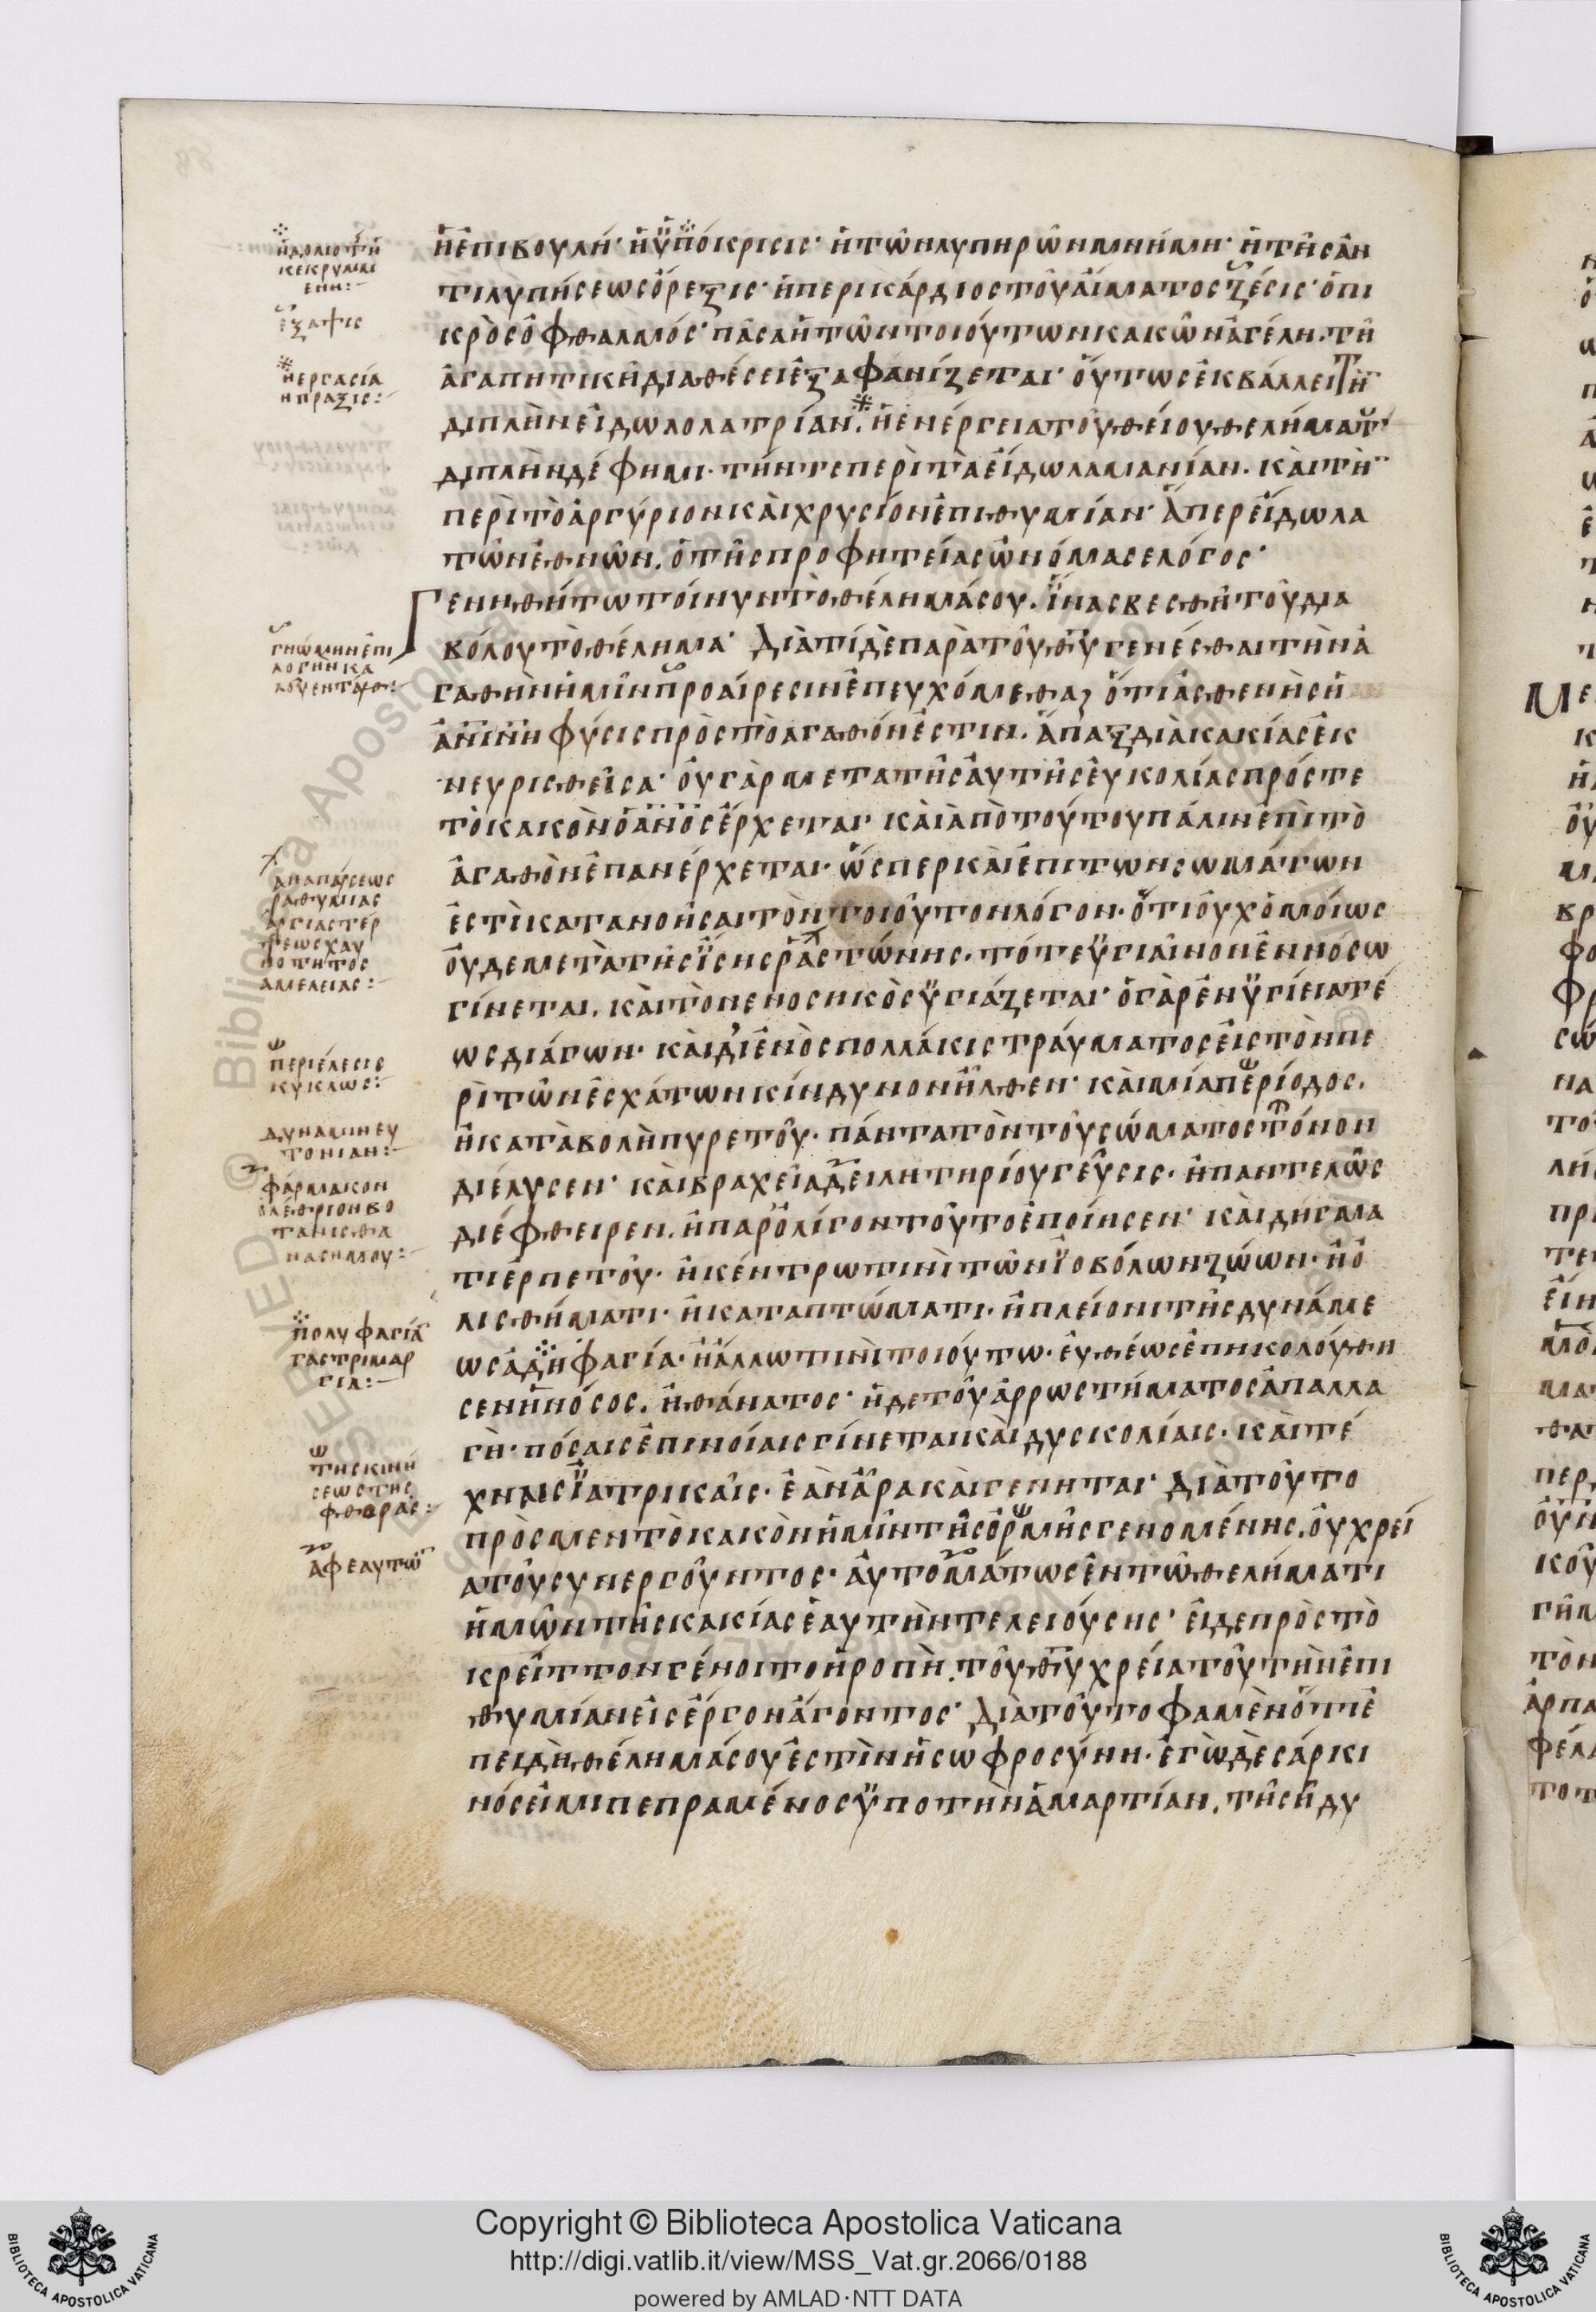 ἡ ἐπιβουλή· ἡ ὑπόκρισις· ἡ τῶν λυπηρῶν μνήμη· ἡ τῆς ἀν
τιλυπήσεως ὄρεξις· ἡ περικάρδιος τοῦ αἵματος ζέσις· ὁ πι
κρὸς ὀφθαλμός· πᾶσα ἡ τῶν τοιούτων κακῶν ἀγέλη. τῆ
ἀγαπητικῆ διαθέσει ἐξαφανίζεται· οὕτως ἐκβάλλει τὴν
διπλὴν εἰδωλολατρίαν. ἡ ἐνέργεια τοῦ θείου θελήματος·
διπλὴν δέ φημι. τήν τε περὶ τὰ εἴδωλα μανίαν. καὶ τὴν
περὶ τὸ ἀργύριον καὶ χρυσίον ἐπιθυμίαν· ἅπερ εἴδωλα
τῶν ἐθνῶν. ὁ τῆς προφητείας ὠνόμασε λόγος·
Γεννηθήτω τοίνυν τὸ θέλημά σου. ἵνα σβεσθῆ τοῦ δια
βόλου τὸ θέλημα· Διατί δὲ παρὰ τοῦ θυ γενέσθαι τὴν ἀ
γαθὴν ἡμῖν προαίρεσιν ἐπευχόμεθα; ὅτι ἀσθενὴς ἡ
ἀνίνη φύσις πρὸς τὸ αγαθόν ἐστιν. ἅπαξ διὰ κακίας ἐκ
νευρισθεῖσα· οὐ γὰρ μετα τῆς ἀυτῆς ἐυκολίας πρός τε
τὸ κακὸν ὁ ἀνος ἔρχεται· καὶ ἀπὸ τούτου πάλιν ἐπὶ τὸ
ἀγαθὸν ἐπανέρχεται· ὥσπερ καὶ ἐπι των σωμάτων
ἐστὶ κατανοῆσαι τὸν τοιοῦτον λόγον. ὅτι οὐχ ὁμοίως
οὐδε μετὰ τῆς ἴσης ραστώνης. τό τε ὑγιαῖνον ἐν νόσω
γίνεται. καὶ τὸ νενοσηκὸς ὑγιάζεται· ὁ γὰρ ἐν ὑγίεια τέ
ως διάγων. καὶ δι ἑνὸς πολλάκις τραύματος εἰς τὸν πε
ρὶ τῶν ἐσχάτων κίνδυνον ἦλθεν· καὶ μία περίοδος.
ἢ καταβολὴ πυρετοῦ. πάντα τὸν τοῦ σώματος τόνον
διέλυσεν· καὶ βραχεῖα δειλητηρίου γεῦσις. ἢ παντελῶς
διέφθειρεν. ἢ παρ ὀλίγον τοῦτο ἐποίησεν· καὶ δήγμα
τι ἑρπετοῦ. ἢ κέντρω τινὶ τῶν ἰοβόλων ζώων. ἢ ὀ
λισθήματι. ἢ καταπτώματι. ἢ πλείονι τῆς δυνάμε
ως ἀδηφαγία. ἢ ἄλλω τινὶ τοιούτω. ἐυθέως ἐπηκολούθη
σεν ἢ νόσος. ἢ θάνατος· ἡ δε τοῦ ἀρρωστήματος ἀπαλλα
γὴ. πόσαις ἐπινοίαις γίνεται καὶ δυσκολίαις. καὶ τέ
χναις ἰατρικαῖς. ἐὰν ἄρα καὶ γενηται· Διὰ τοῦτο
πρὸς μεν τὸ κακὸν ἡμῖν τῆς ὁρμῆς γενομένης. οὐ χρεί
α τοῦ συνεργοῦντος. ἀυτομάτως ἐν τῶ θελήματι
ἡμῶν τῆς κακίας ἑαυτὴν τελειούσης· εἰ δε πρὸς τὸ
κρεῖττον γένοιτο ἡ ροπὴ. τοῦ θυ χρεία τοῦ τὴν ἐπι
θυμίαν εἰς ἔργον ἄγοντος· Διὰ τοῦτο φαμὲν ὅτι ἐ
πειδὴ θέλημά σου ἐστὶν ἡ σωφροσύνη. ἐγὼ δὲ σάρκι
νός εἰμι πεπραμένος ὑπο τὴν ἁμαρτίαν. τῆς ἡδυ
ἡ δολιοτη
κεκρυμμ
ενη:
εξαψις
ἡ εργασία
η πραξις:
γνώμην ἐπι
λογην κα
ραθυμιας
αμελειας:
περιέλεσις
κυκλως:
δυναμιν ευ
τονιαν:
φάρμακον
ολέθριον βο
πολυφαγία
γαστριμαρ
γία:
της κινή
σεως της
φθορᾶς:
ἀφ εαυτῶν
Copyright © Biblioteca Apostolica Vaticana
http://digi.vatlib.it/view/MSS_Vat.gr.2066/0188
powered by AMLAD·NTT DATA
BIBLIOTECA APOSTOLICA VATICANA
BIBLIOTECA APOSTOLICA VATICANA